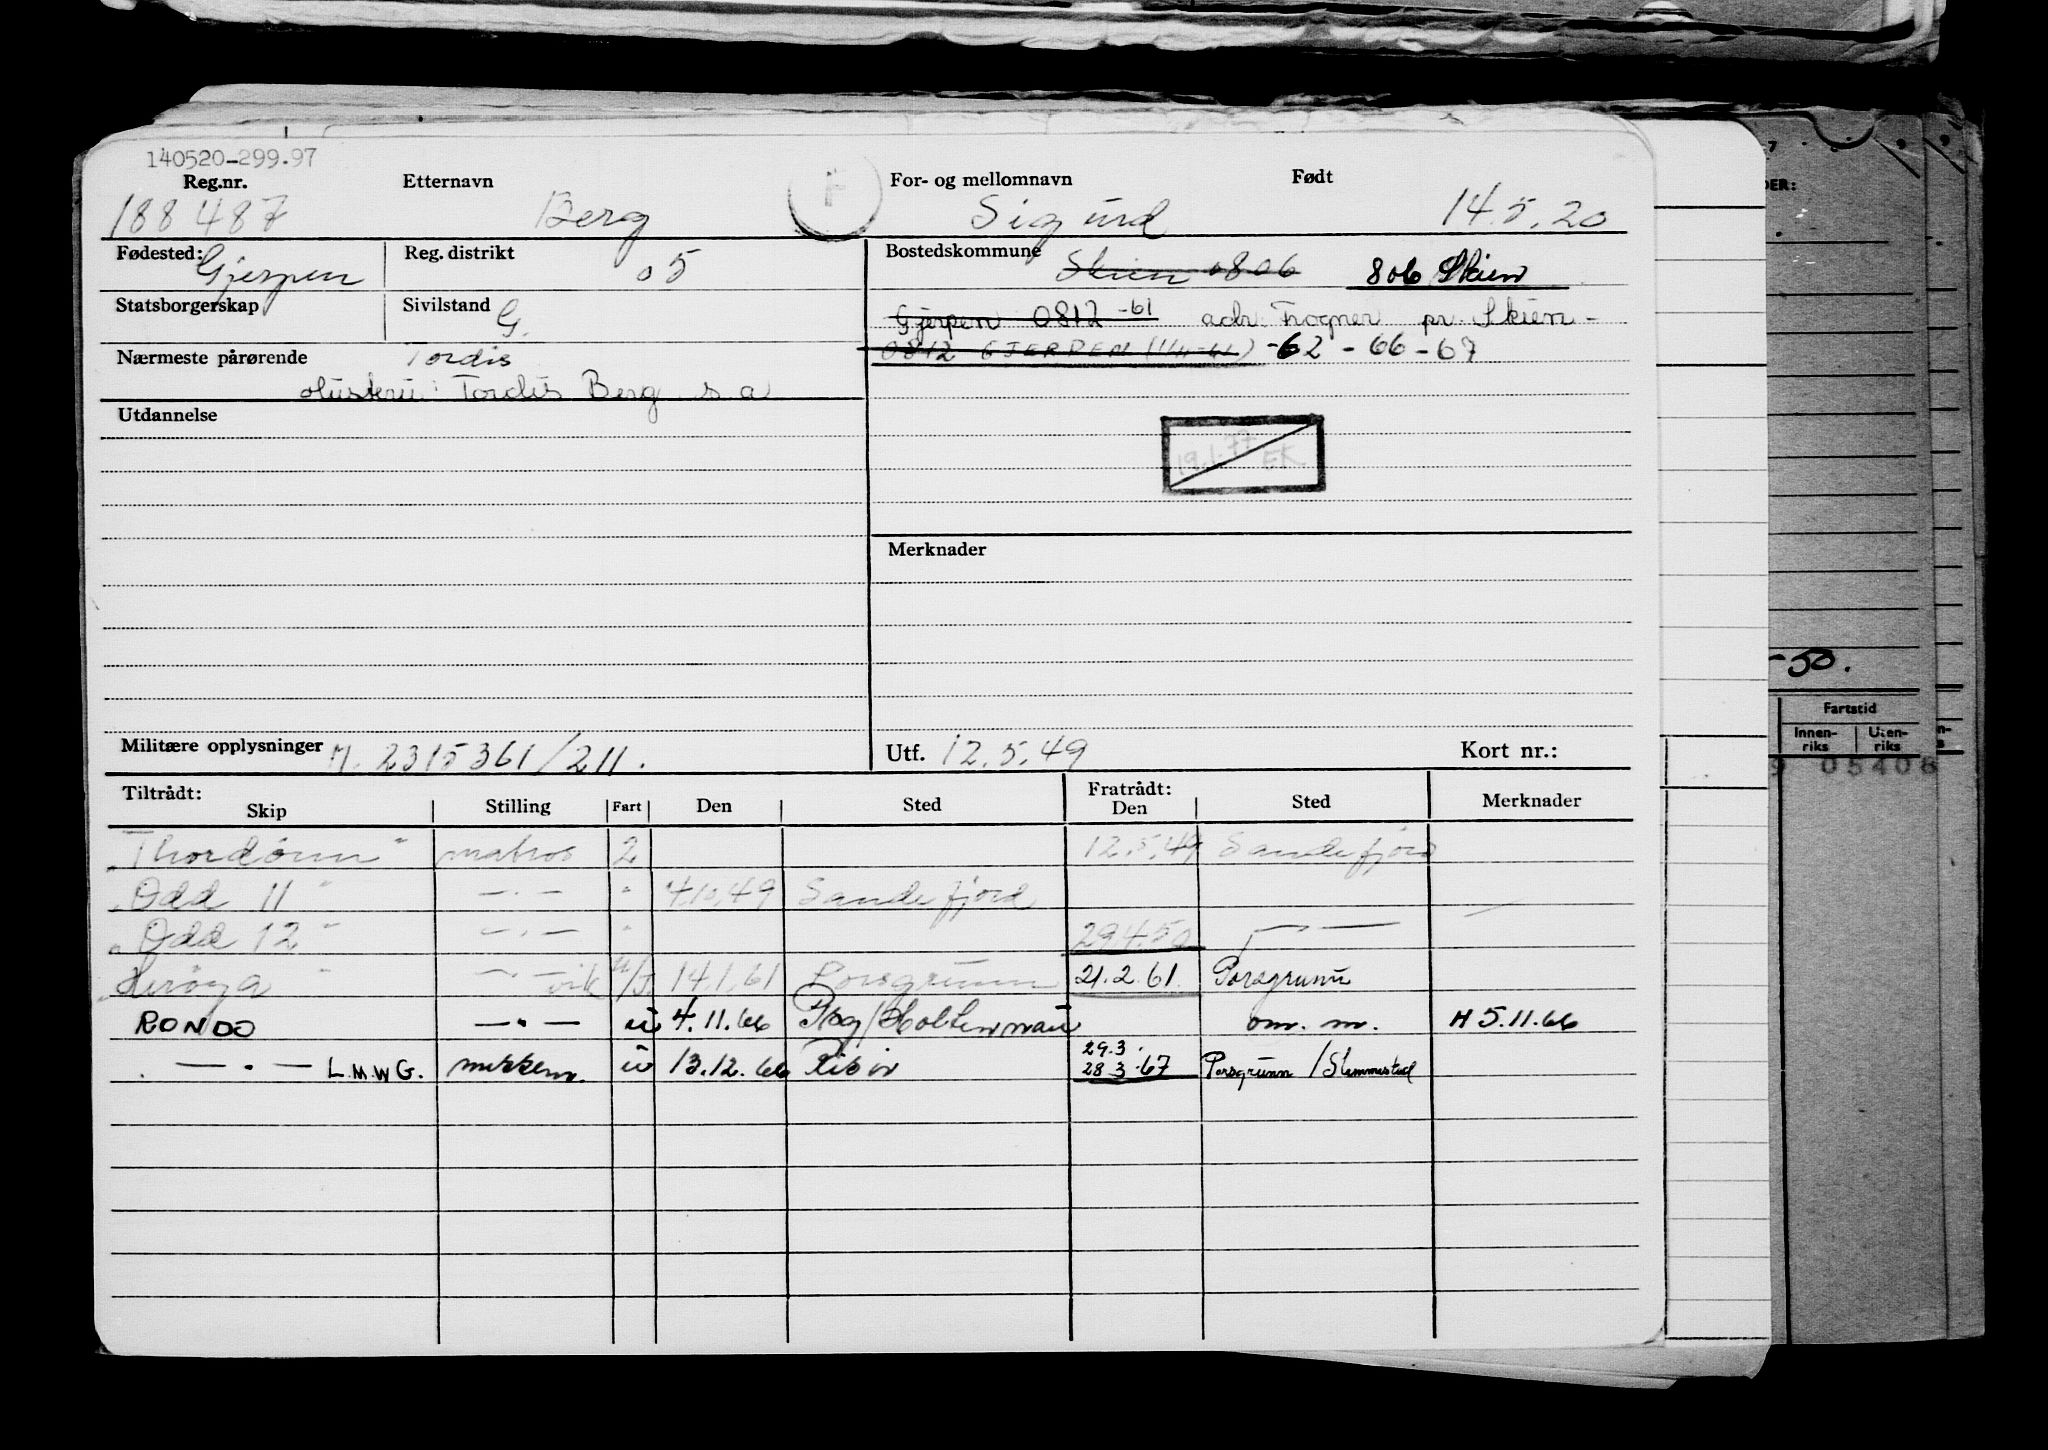 140520-299.97
Reg.nr. Etternavn For- og mellomnavn Født
188487 Berg F Sigurd 14.5.20
Fødested: Gjerpen Reg. distrikt 05 Bostedskommune Skien 0806 806 Skien
Statsborgerskap Sivilstand G. Gjerpen 0812 -61 adr. Frogner pr. Skien -
Nærmeste pårørende Tordis 0812 GJERPEN -62 - 66 - 67
Hustru: Tordis Berg s.a
Utdannelse
19.1.77 EK
Merknader
Militære opplysninger M. 2315361/211. Utf. 12.5.49 Kort nr.:
Tiltrådt: Fratrådt:
Skip Stilling Fart Den Sted Den Sted Merknader
"Thordønn" matros 2 12.5.49 Sandefjord
"Odd 11" —.— " 4.10.49 Sandefjord
"Odd 12" —.— " 29.4.50 —.—
"Herøya" —.— vik u/I 14.1.61 Porsgrunn 21.2.61 Porsgrunn
RONDO —.— u 4.11.66 Psg/Holtenman om. m. H 5.11.66
—.— L.M.W.G. u 13.12.66 29.3. 28.3.67 Porsgrunn/Slemmestad
DER:
-50.
Fartstid
Innen-riks Uten-riks
9 05406